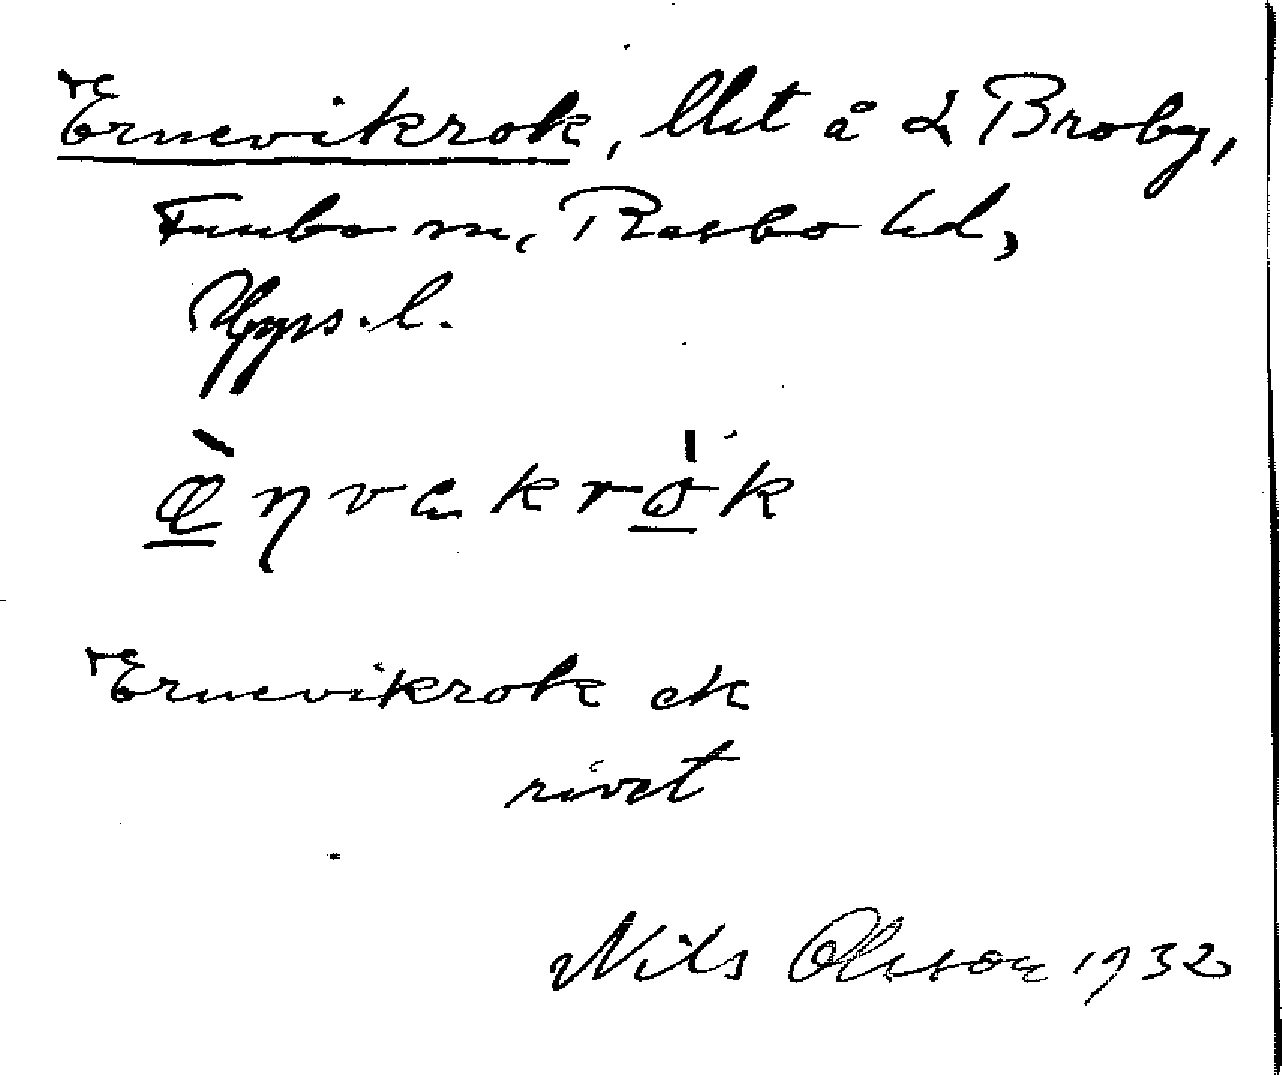 Ernevikrok, Utet å L Broby,
Funbo sn, Rasbo hd,
Upps. l.
Ernevikrok ek
rivet
Nils Olsson 1932